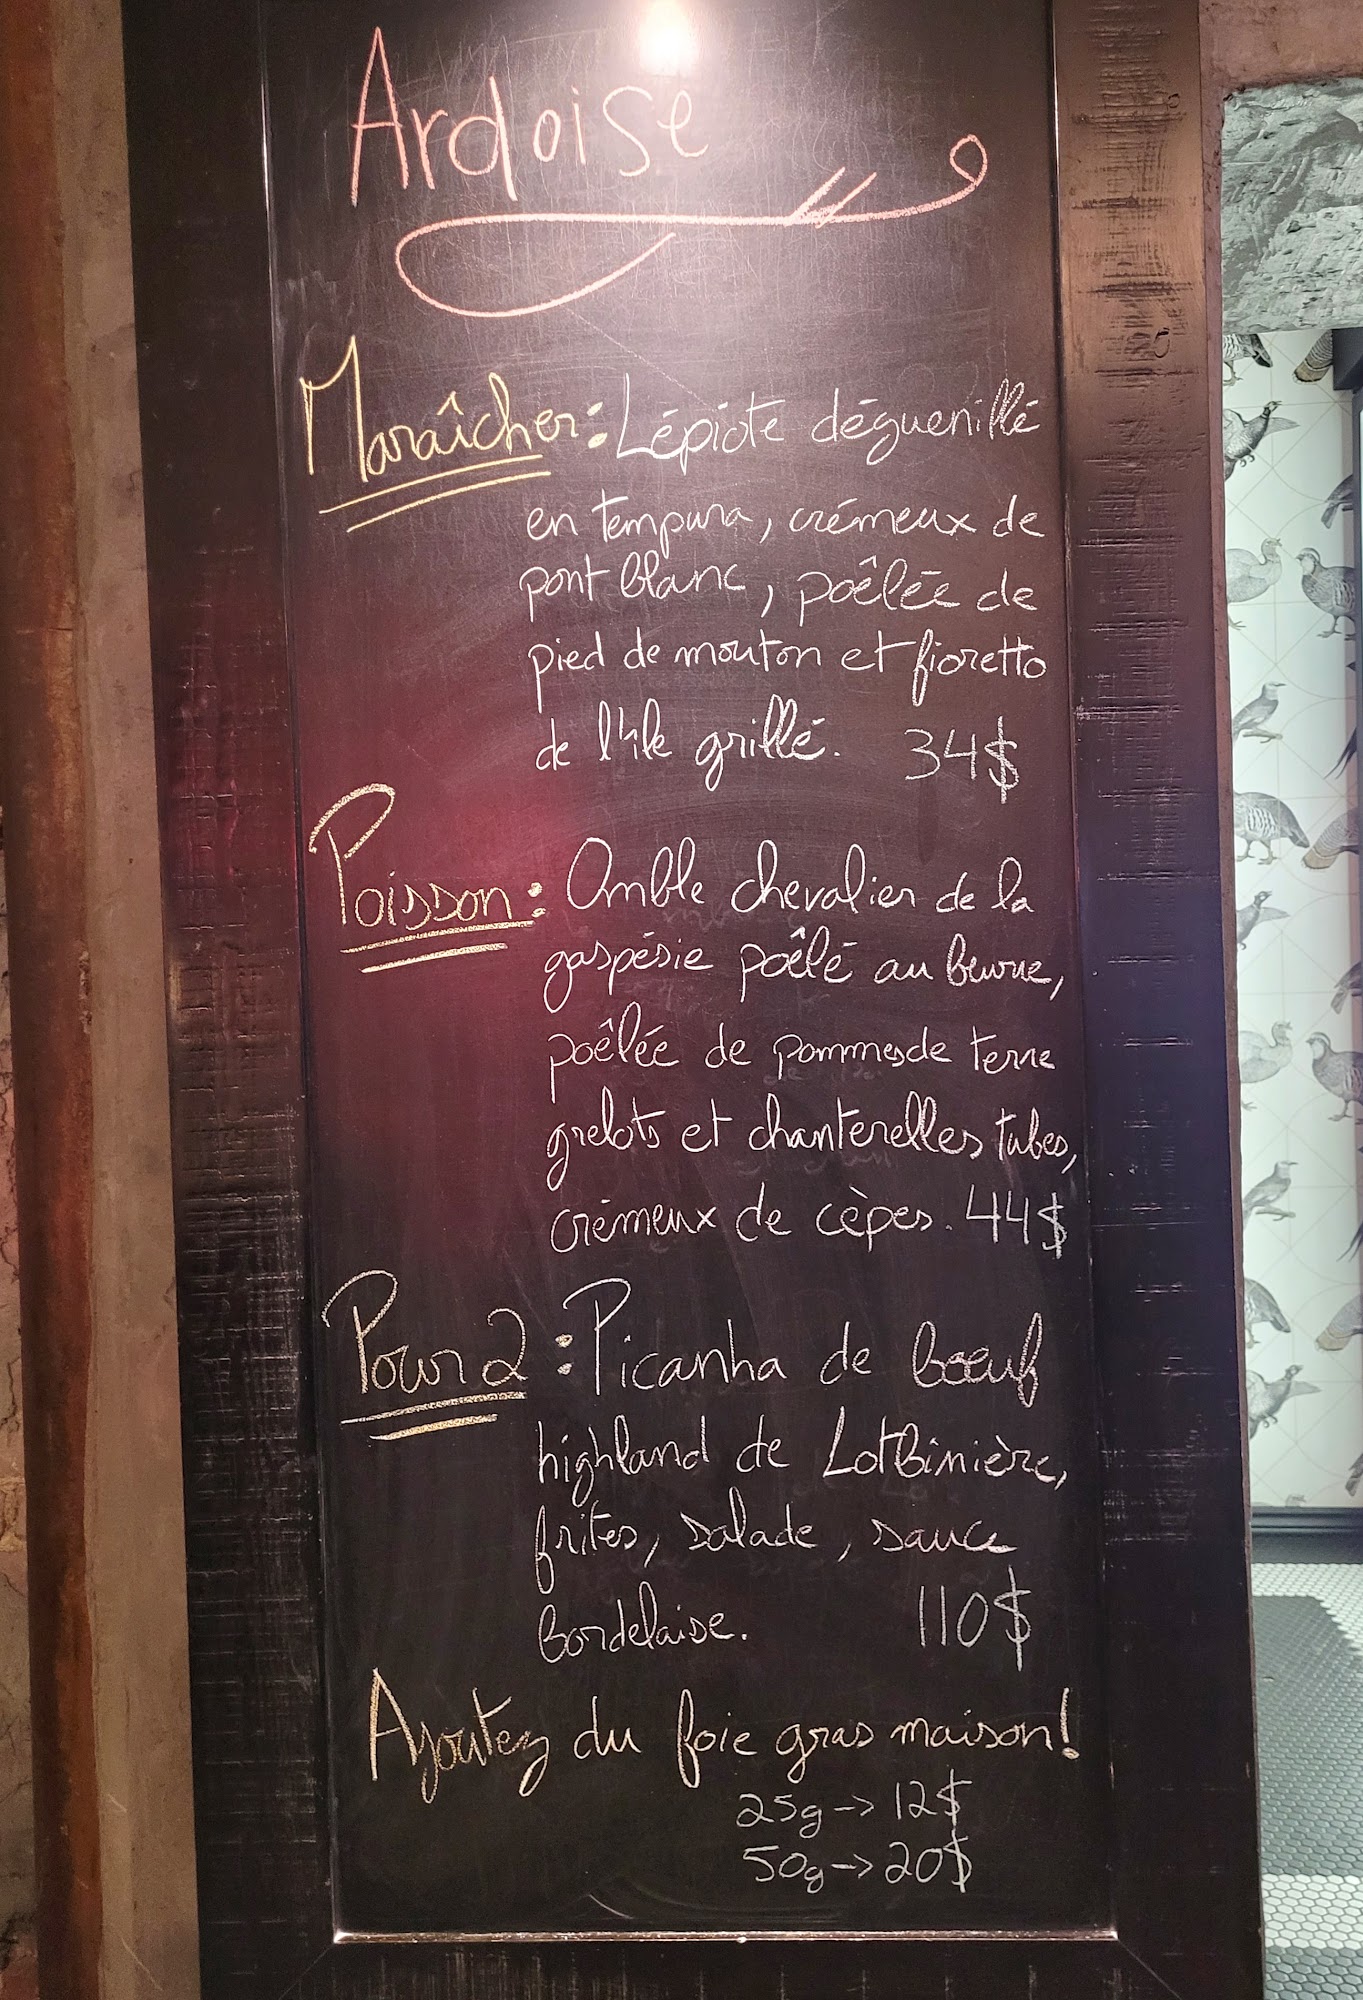 Ardoise
Maraîcher: Lépiote déguenillé
en tempura, crémeux de
pont blanc, poêlée de
pied de mouton et fioretto
de l'île grillé. 34$
Poisson: Omble chevalier de la
gaspésie poêlé au beurre,
poêlée de pommes de terre
grelots et chanterelles tubes,
crémeux de cèpes. 44$
Pour 2: Picanha de boeuf
highland de Lotbinière,
frites, salade, sauce
Bordelaise. 110$
Ajoutez du foie gras maison!
25g -> 12$
50g -> 20$